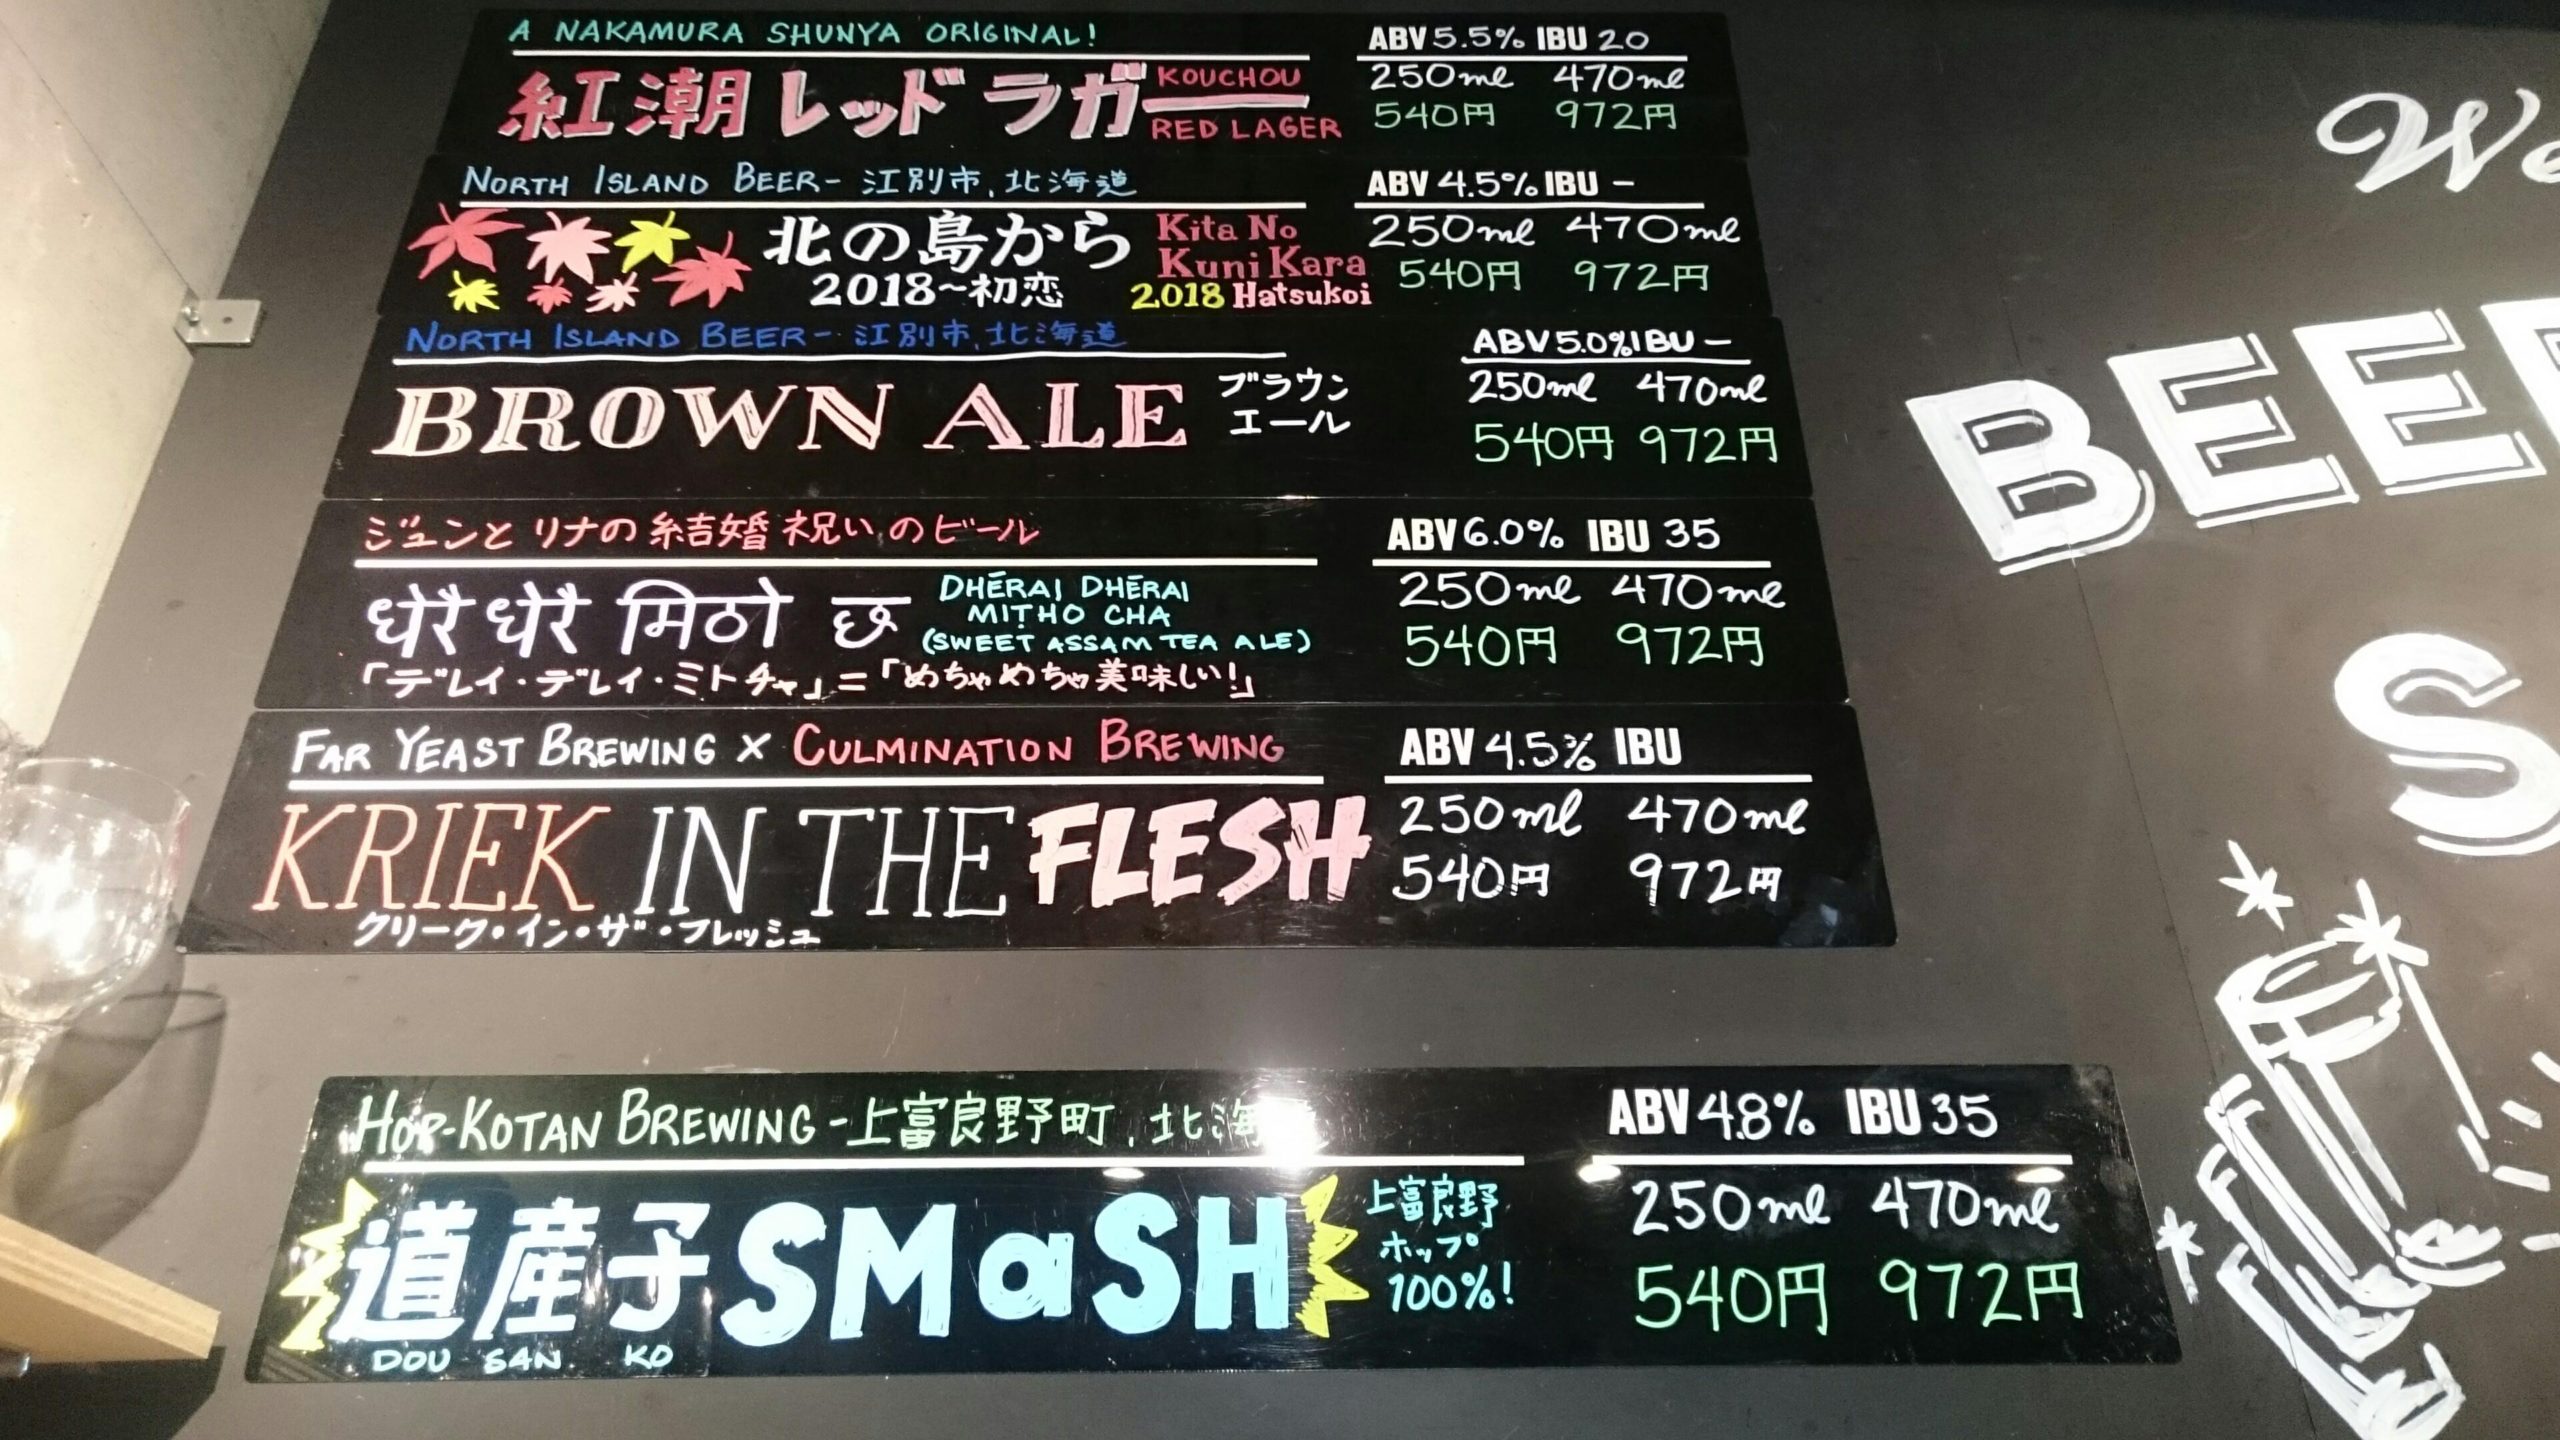 A NAKAMURA SHUNYA ORIGINAL!
紅潮レッドラガー
KOUCHOU
RED LAGER
ABV 5.5% IBU 20
250ml 470ml
540円 972円
NORTH ISLAND BEER - 江別市, 北海道
北の島から
2018~初恋
Kita No
Kuni Kara
2018 Hatsukoi
ABV 4.5% IBU -
250ml 470ml
540円 972円
NORTH ISLAND BEER - 江別市, 北海道
BROWN ALE
ブラウン
エール
ABV 5.0% IBU -
250ml 470ml
540円 972円
ジュンとリナの結婚祝いのビール
धेरै धेरै मिठो छ
DHĒRAI DHĒRAI
MIṬHO CHA
(SWEET ASSAM TEA ALE)
「デレイ・デレイ・ミトチャ」=「めちゃめちゃ美味しい!」
ABV 6.0% IBU 35
250ml 470ml
540円 972円
FAR YEAST BREWING X CULMINATION BREWING
KRIEK IN THE FLESH
クリーク・イン・ザ・フレッシュ
ABV 4.5% IBU
250ml 470ml
540円 972円
HOP-KOTAN BREWING - 上富良野町, 北海
道産子SMaSH
DOU SAN KO
上富良野
ホップ
100%!
ABV 4.8% IBU 35
250ml 470ml
540円 972円